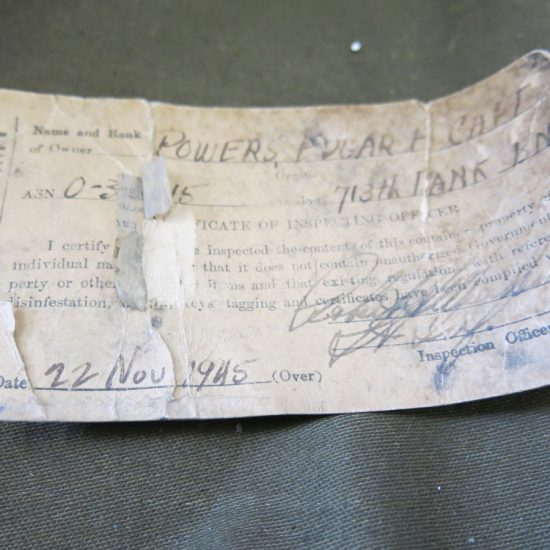 Name and Rank
of Owner POWERS, EDGAR H CAPT
ASN O-3 15 713th TANK
IFICATE OF INSPECTING OFFICER
I certify inspected the contents of this container property
individual that it does not contain unauthorized Government
perty or other and that existing regulations with refer
isinfestation, tagging and certificates have been complied
Inspection Office
Date 22 Nov 1945 (Over)